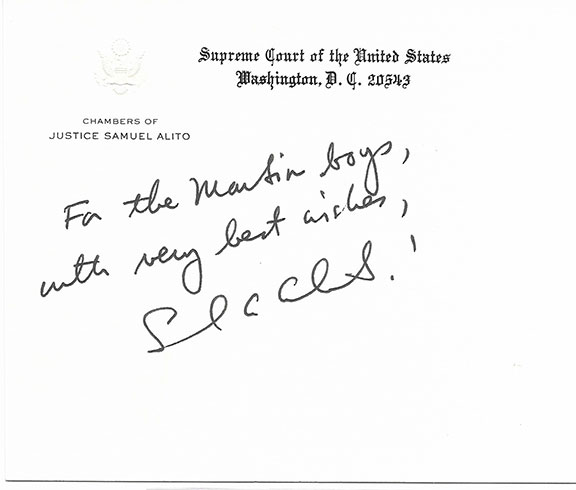 Supreme Court of the United States
Washington, D. C. 20543
CHAMBERS OF
JUSTICE SAMUEL ALITO
For the Martin boys,
with very best wishes,